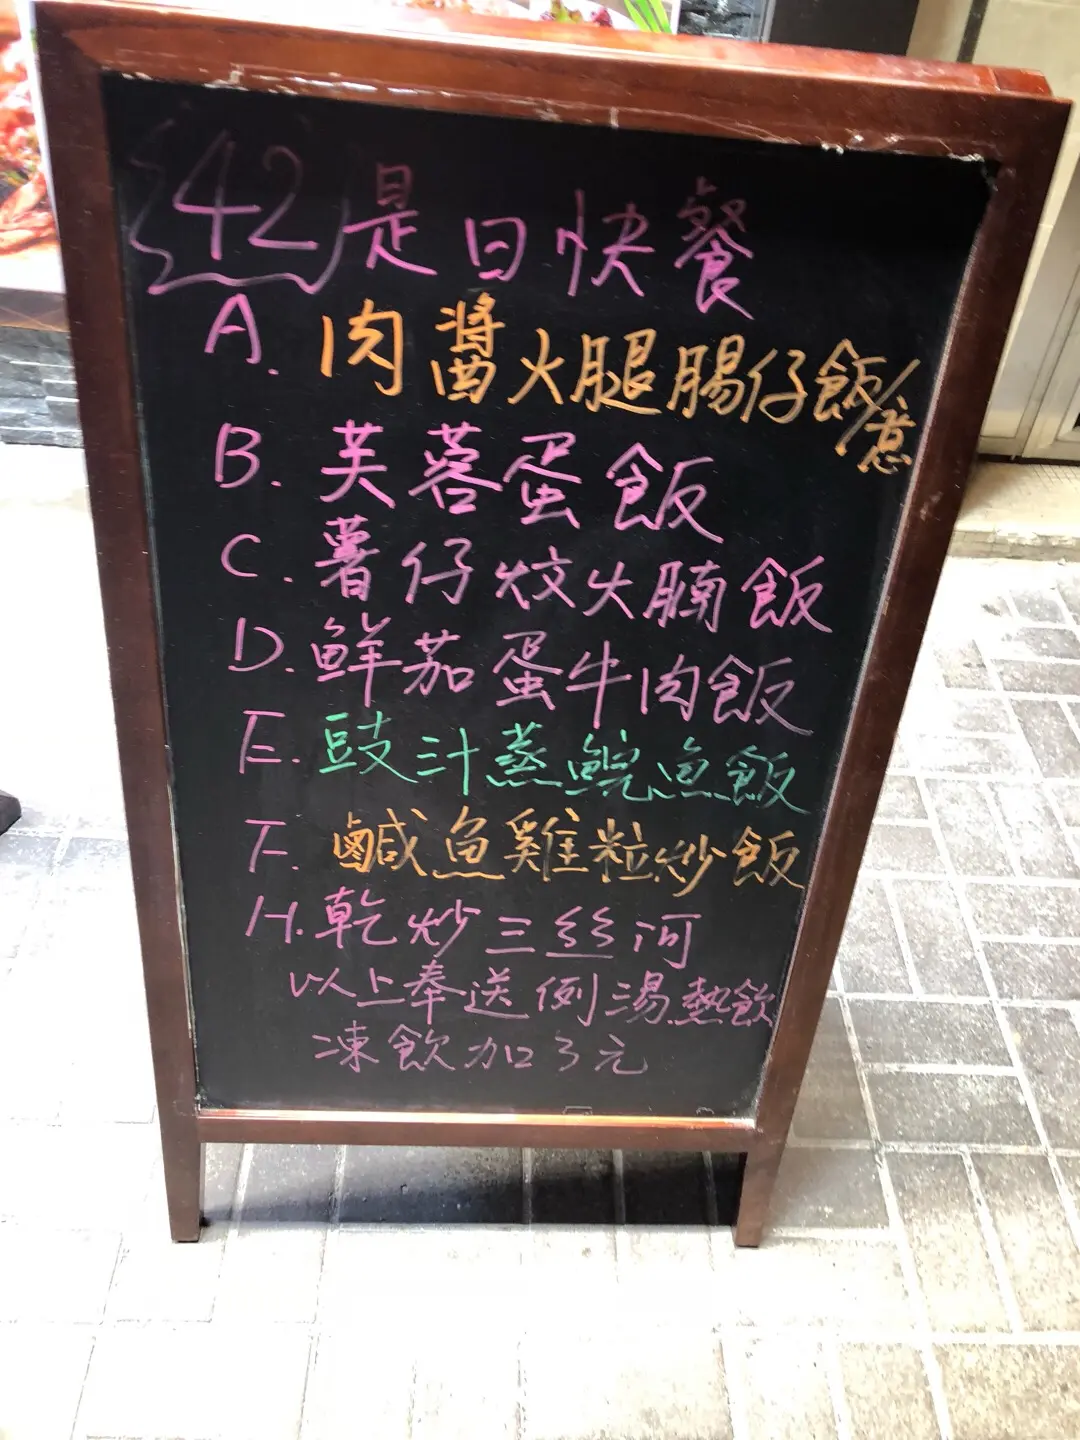 42 是日快餐
A. 肉醬火腿腸仔飯/意
B. 芙蓉蛋飯
C. 薯仔炆火腩飯
D. 鮮茄蛋牛肉飯
E. 豉汁蒸鯇魚飯
F. 鹹魚雞粒炒飯
H. 乾炒三丝河
以上奉送例湯熱飲
凍飲加3元